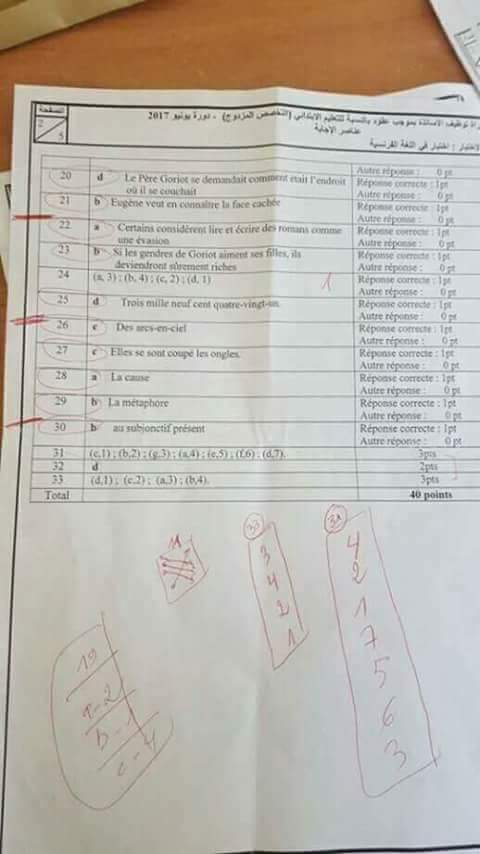 الصفحة
2
5
توظيف الأساتذة بموجب عقود بالنسبة للتعليم الابتدائي (التخصص المزدوج) - دورة يونيو 2017
عناصر الإجابة
الاختبار : اختبار في اللغة الفرنسية
Autre réponse : 0 pt
20 d Le Père Goriot se demandait comment était l'endroit où il se couchait Réponse correcte : 1pt
Autre réponse : 0 pt
21 b Eugène veut en connaître la face cachée Réponse correcte : 1pt
Autre réponse : 0 pt
22 a Certains considèrent lire et écrire des romans comme une évasion Réponse correcte : 1pt
Autre réponse : 0 pt
23 b Si les gendres de Goriot aiment ses filles, ils deviendront sûrement riches Réponse correcte : 1pt
Autre réponse : 0 pt
24 (a, 3) ; (b, 4) ; (c, 2) ; (d, 1) 1 Réponse correcte : 1pt
Autre réponse : 0 pt
25 d Trois mille neuf cent quatre-vingt-un. Réponse correcte : 1pt
Autre réponse : 0 pt
26 c Des arcs-en-ciel Réponse correcte : 1pt
Autre réponse : 0 pt
27 c Elles se sont coupé les ongles. Réponse correcte : 1pt
Autre réponse : 0 pt
28 a La cause Réponse correcte : 1pt
Autre réponse : 0 pt
29 b La métaphore Réponse correcte : 1pt
Autre réponse : 0 pt
30 b au subjonctif présent Réponse correcte : 1pt
Autre réponse : 0 pt
31 (c,1) ; (b,2) ; (g,3) ; (a,4) ; (e,5) ; (f,6) ; (d,7). 3pts
32 d 2pts
33 (d,1) ; (c,2) ; (a,3) ; (b,4). 3pts
Total 40 points
33
3
4
2
1
31
4
2
1
7
5
6
3
19
a-2
b-1
c-4